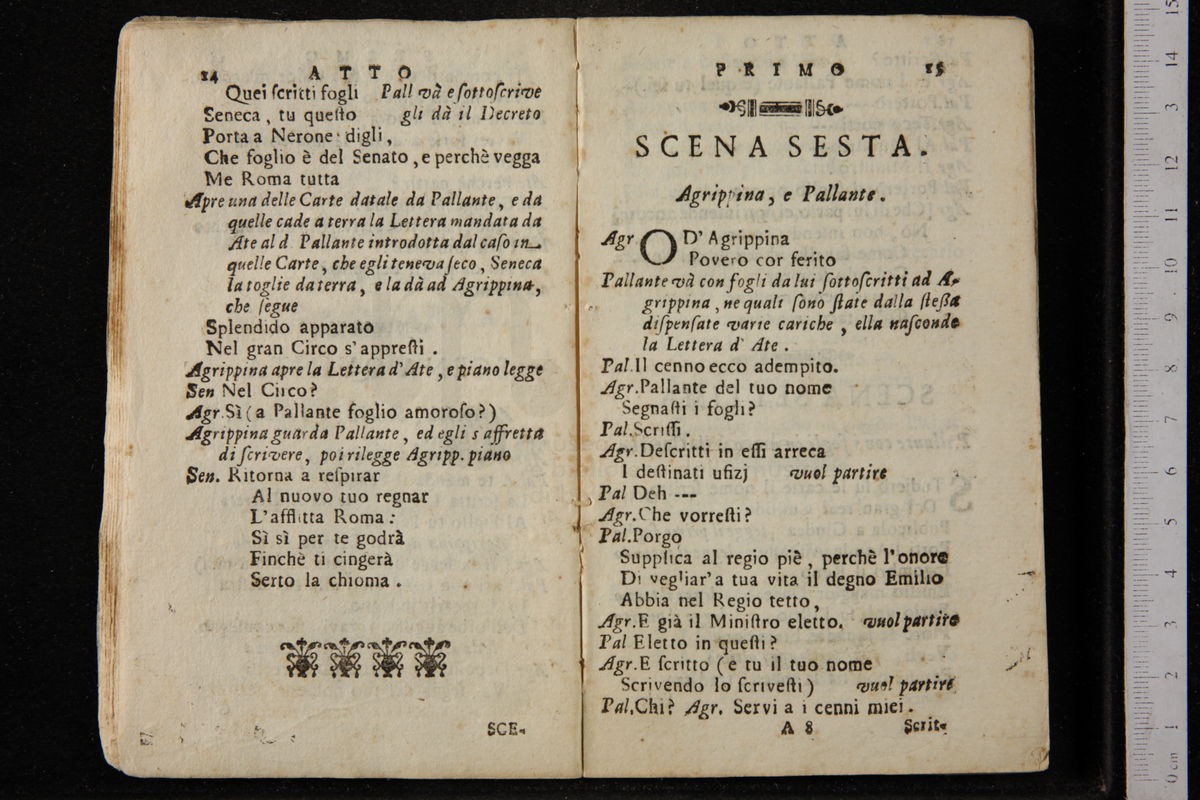 14 ATTO
Quei ſcritti fogli Pall và e ſottoſcrive
Seneca, tu queſto gli dà il Decreto
Porta a Nerone· digli,
Che foglio è del Senato, e perchè vegga
Me Roma tutta
Apre una delle Carte datale da Pallante, e da
quelle cade a terra la Lettera mandata da
Ate al d. Pallante introdotta dal caſo in
quelle Carte, che egli teneva ſeco, Seneca
la toglie da terra, e la dà ad Agrippina,
che ſegue
Splendido apparato
Nel gran Circo s'appreſti.
Agrippina apre la Lettera d'Ate, e piano legge
Sen Nel Circo?
Agr. Sì (a Pallante foglio amoroſo?)
Agrippina guarda Pallante, ed egli s'affretta
di ſcrivere, poi rilegge Agripp. piano
Sen. Ritorna a reſpirar
Al nuovo tuo regnar
L'afflitta Roma:
Sì sì per te godrà
Finchè ti cingerà
Serto la chioma.
SCE-
PRIMO 15
SCENA SESTA.
Agrippina, e Pallante.
Agr OD' Agrippina
Povero cor ferito
Pallante và con fogli da lui ſottoſcritti ad A-
grippina, ne quali ſono ſtate dalla ſteßa
diſpenſate varie cariche, ella naſconde
la Lettera d' Ate.
Pal. Il cenno ecco adempito.
Agr. Pallante del tuo nome
Segnaſti i fogli?
Pal. Scriſſi.
Agr. Deſcritti in eſſi arreca
I deſtinati ufizj vuol partire
Pal Deh ---
Agr. Che vorreſti?
Pal. Porgo
Supplica al regio piè, perchè l'onore
Di vegliar'a tua vita il degno Emilio
Abbia nel Regio tetto,
Agr. E già il Miniſtro eletto. vuol partire
Pal Eletto in queſti?
Agr. E ſcritto (e tu il tuo nome
Scrivendo lo ſcriveſti) vuol partire
Pal. Chi? Agr. Servi a i cenni miei.
A 8 Scrit-